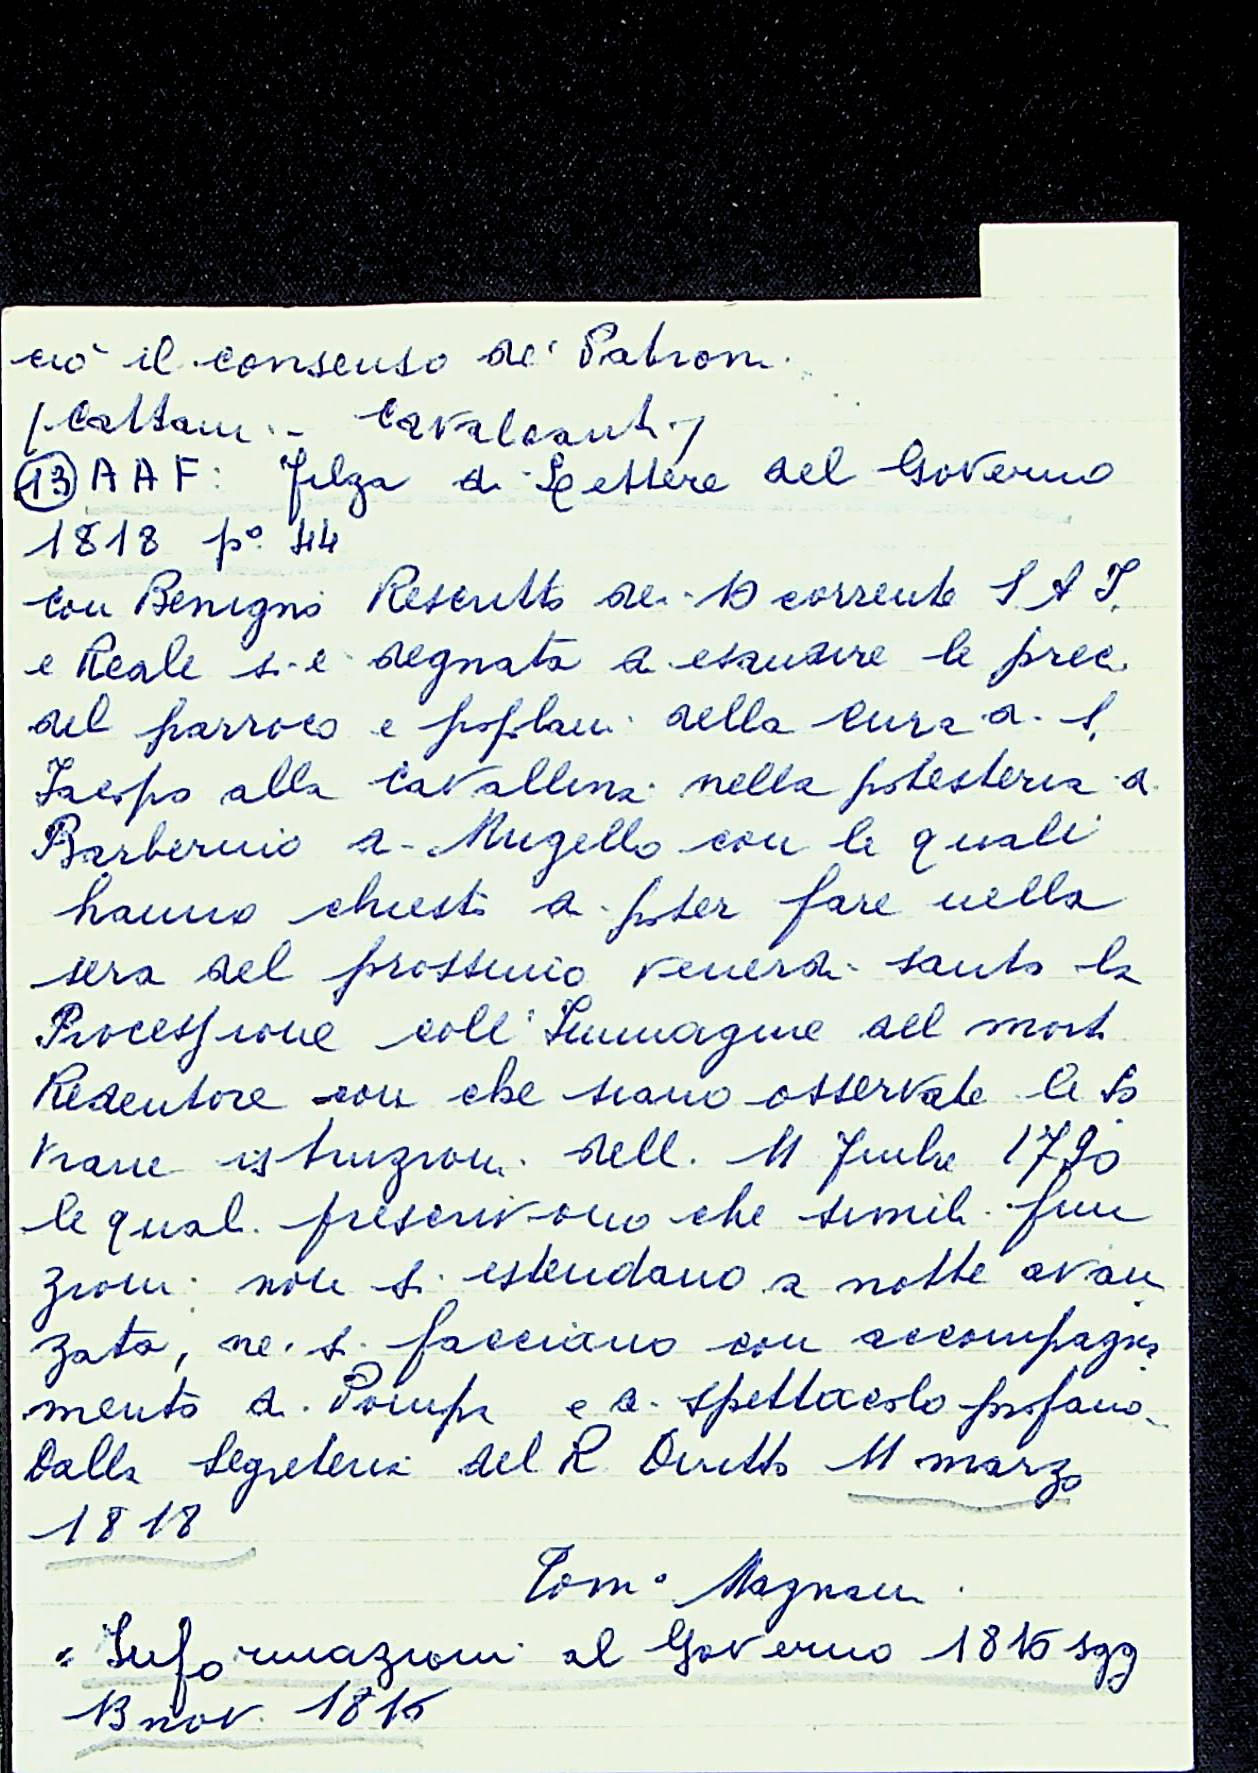 ciò il consenso de' Patroni.
(Cattani - Cavalcanti)
(13) A A F: Filza di Lettere del Governo
1818 p° 44
con Benigno Rescritto dei 10 corrente S A I.
e Reale si è degnata di esaudire le preci
del parroco e popolani della Cura di S.
Jacopo alla Cavallina nella potesteria di
Barberino di Mugello con le quali
hanno chiesto di poter fare nella
sera del prossimo venerdi santo la
Processione coll' Immagine del morto
Redentore con che siano osservate le So
vrane istruzioni dell. 11 1790
le quali prescrivono che simili fun
zioni non si estendano a notte avan
zata, ne si facciano con accompagna
mento di Pompa e di spettacolo profano.
Dalla Segreteria del R Diritto 11 marzo
1818
Tom° Magnani.
Informazioni al Governo 1815 sgg
13 nov. 1815